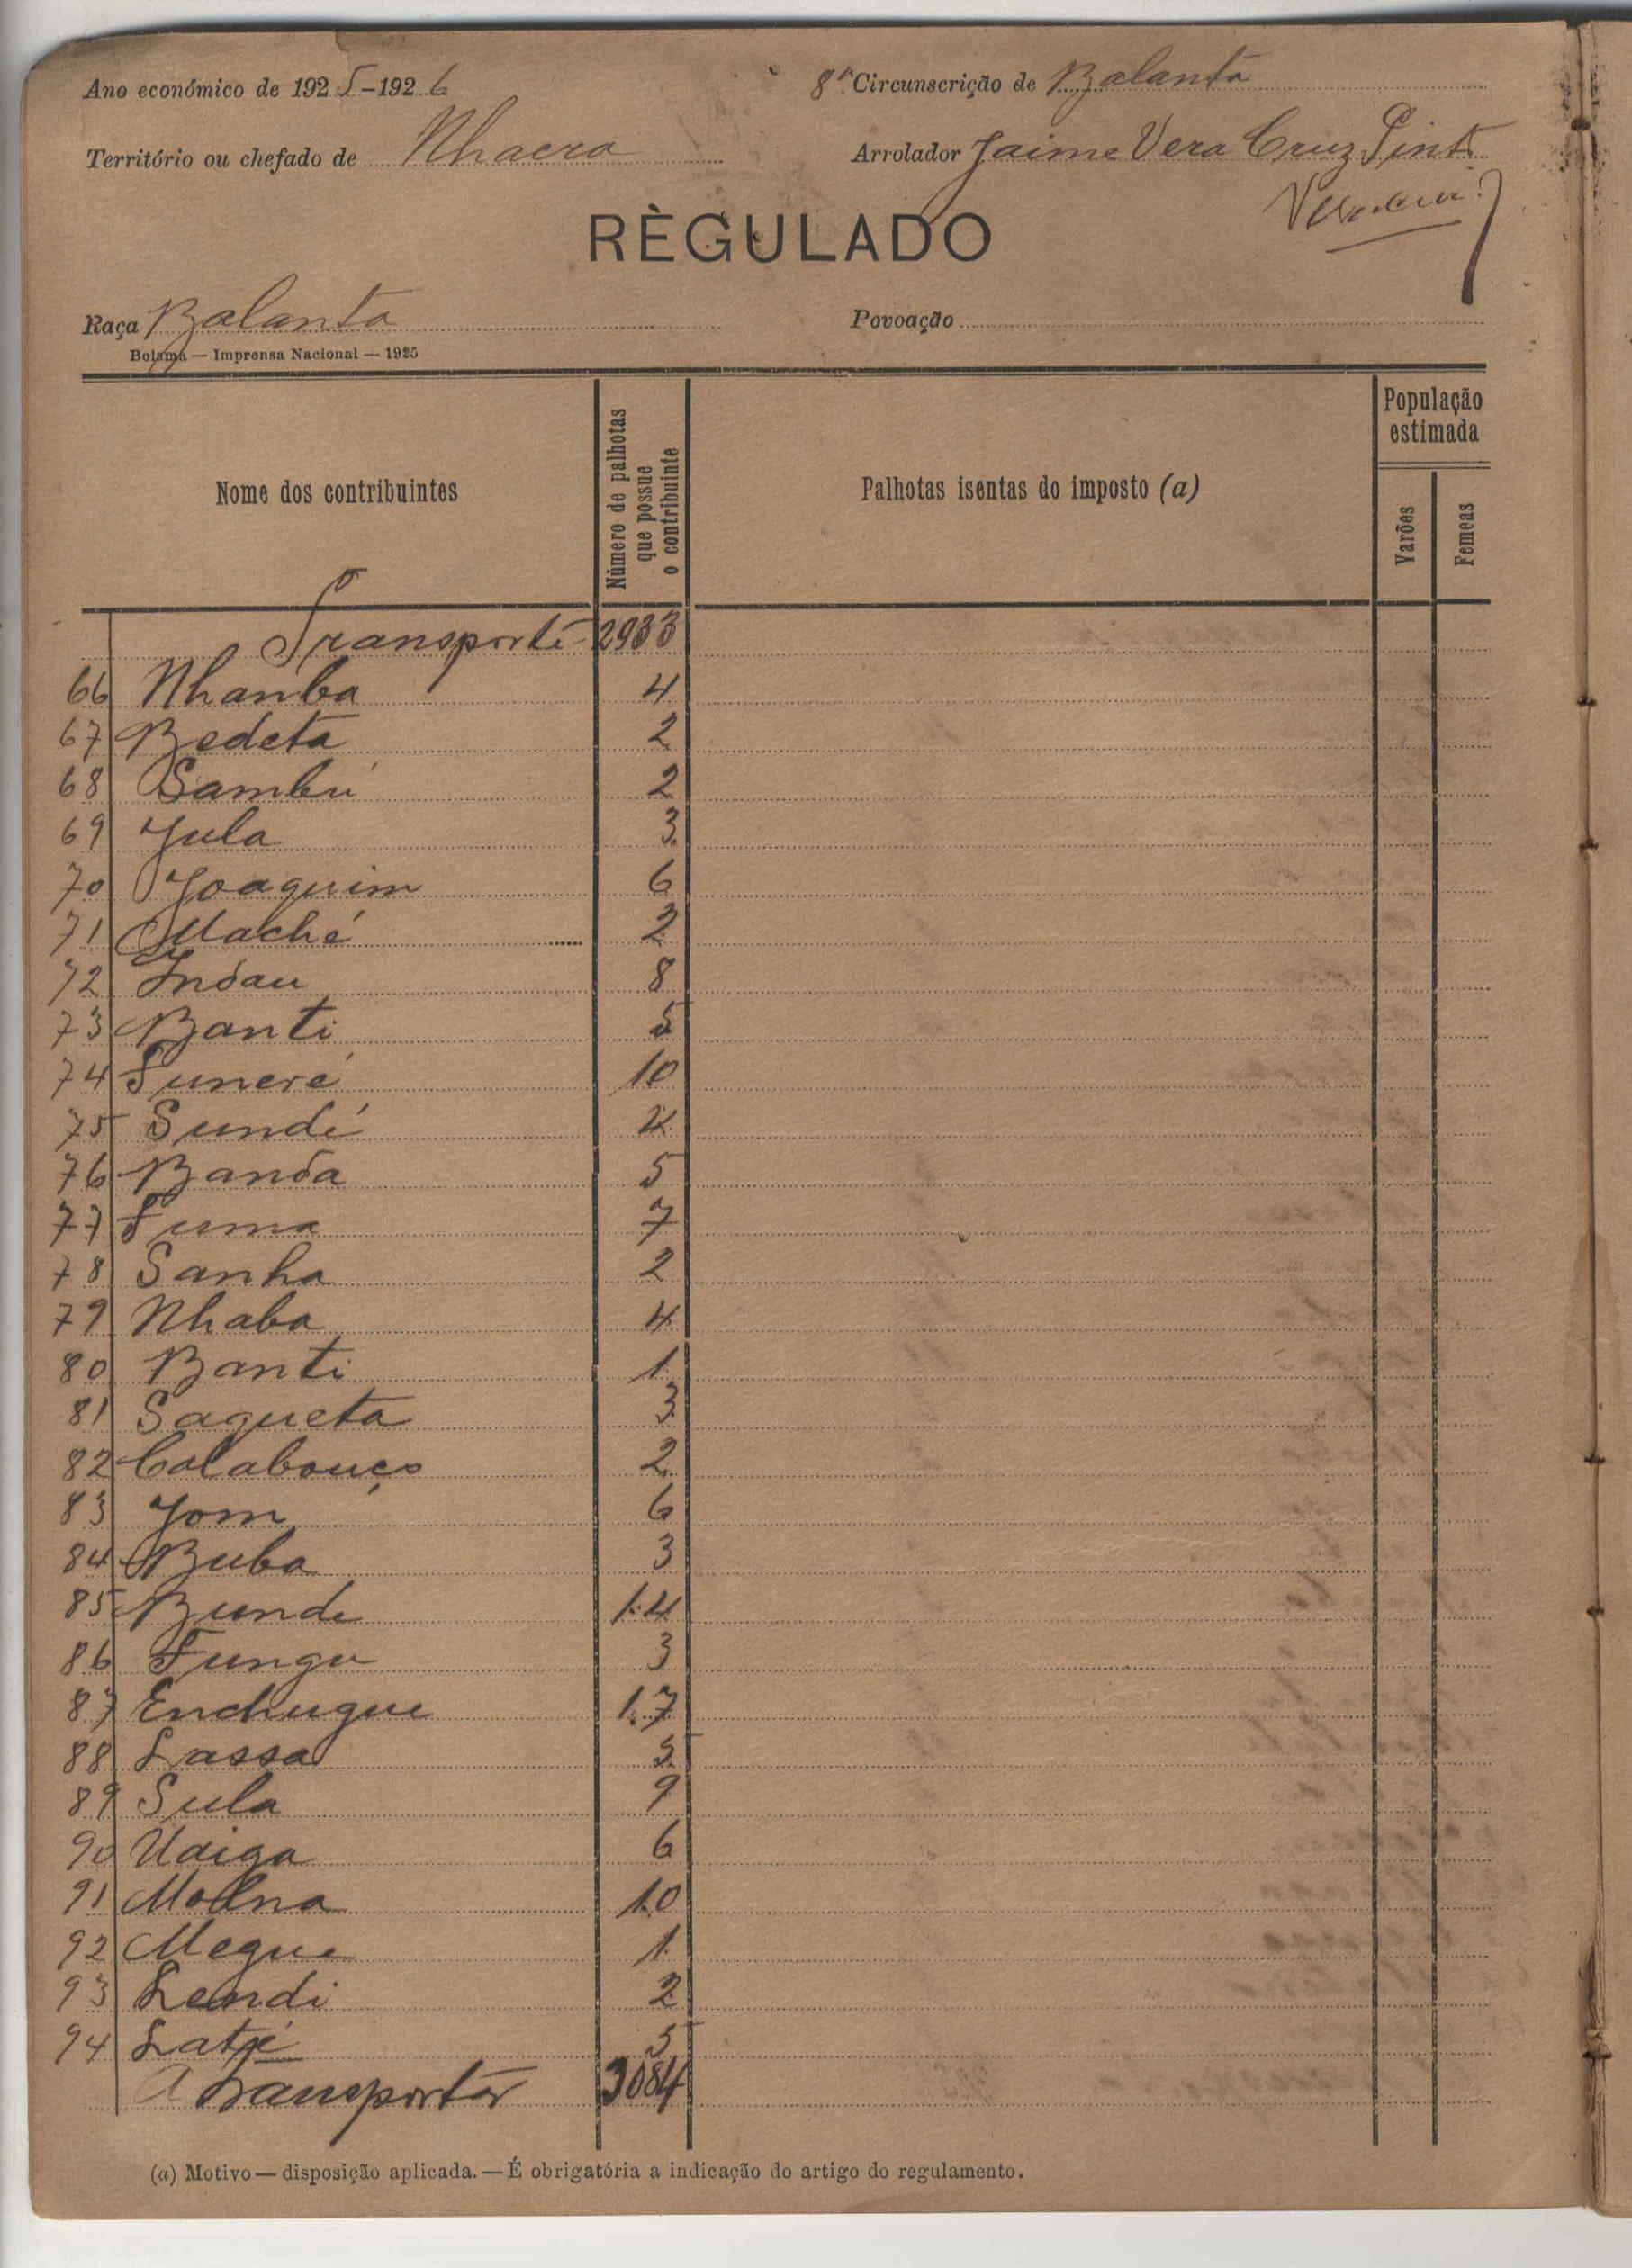 Ano económico de 1925-1926
8ª Circunscrição de Balanta
Território ou chefado de Nhacra
Arrolador Jaime Vera Cruz Pinto
RÈGULADO
Raça Balanta
Povoação
Bolama — Imprensa Nacional — 1925
Nome dos contribuintes
Número de palhotas que possue o contribuinte
Palhotas isentas do imposto (a)
População estimada
Varões
Femeas
Transporte 2933
66 Nhanba 4
67 Bedeta 2
68 Sambú 2
69 Jula 3
70 Joaquim 6
71 Maché 2
72 Indau 8
73 Banti 5
74 Suneré 10
75 Sundé 4
76 Banda 5
77 Suma 7
78 Sanha 2
79 Nhaba 4
80 Banti 1
81 Saqueta 3
82 Calabouço 2
83 Jom 6
84 Buba 3
85 Bunde 14
86 Fungu 3
87 Enchugue 17
88 Lassa 5
89 Sula 9
90 Uaiga 6
91 10
92 Megue 1
93 Lendi 2
94 5
A transportar 3084
(a) Motivo — disposição aplicada. — É obrigatória a indicação do artigo do regulamento.